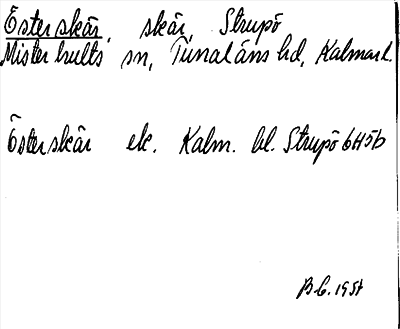 Österskär, skär, Strupö
Misterhults sn, Tunaläns hd, Kalmar l.
Österskär ek. Kalm. bl. Strupö 6H5b
B.C. 1957